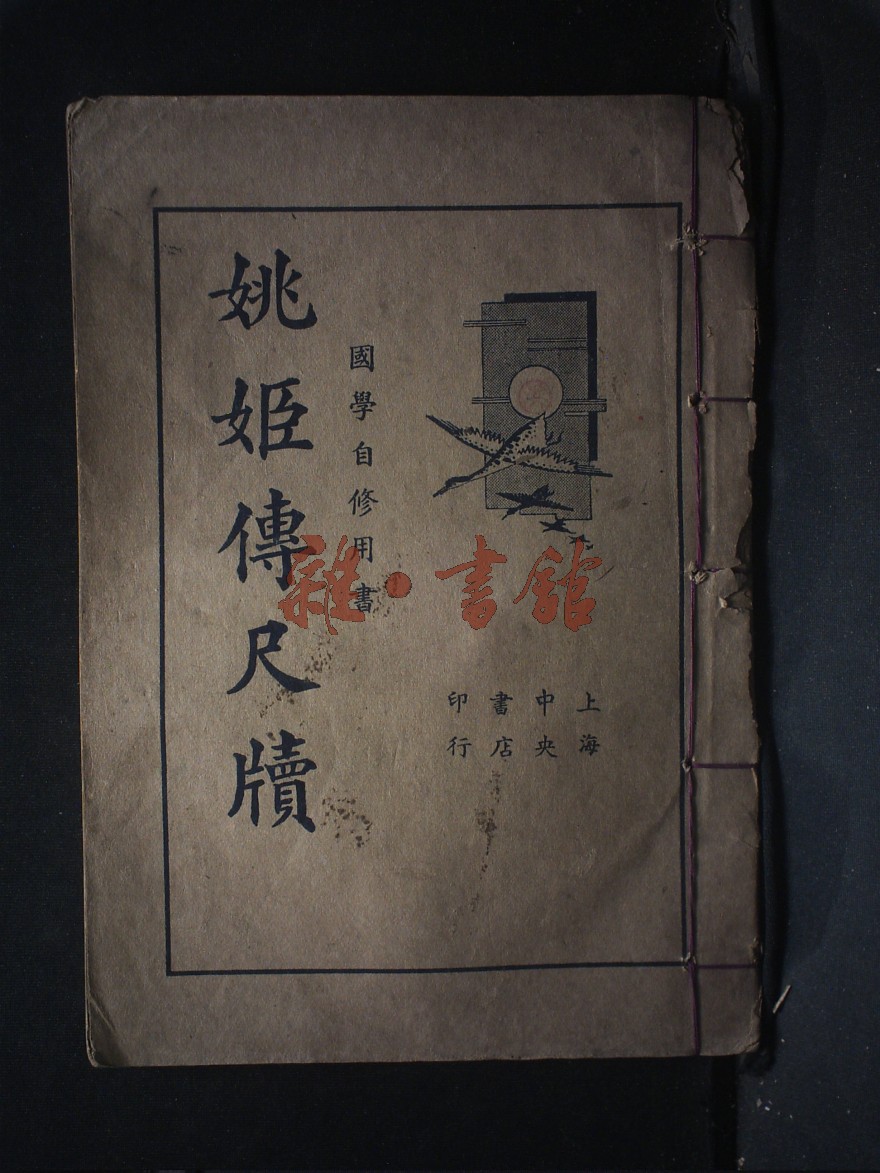 上海
中央
書店
印行
國學自修用書
姚姬傳尺牘
雜·書館